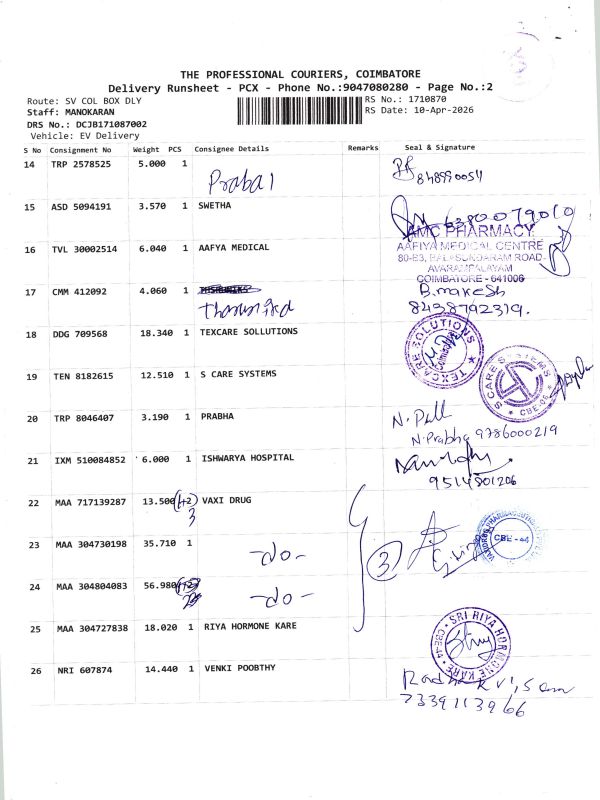 THE PROFESSIONAL COURIERS, COIMBATORE
Delivery Runsheet - PCX - Phone No.:9047080280 - Page No.:2
Route: SV COL BOX DLY
RS No.: 1710870
Staff: MANOKARAN
RS Date: 10-Apr-2026
DRS No.: DCJB171087002
Vehicle: EV Delivery
S No Consignment No Weight PCS Consignee Details Remarks Seal & Signature
14 TRP 2578525 5.000 1
Prabal
15 ASD 5094191 3.570 1 SWETHA
16 TVL 30002514 6.040 1 AAFYA MEDICAL
AMC PHARMACY
AAFIYA MEDICAL CENTRE
80-E3, BALASUNDARAM ROAD
AVARAMPALAYAM
COIMBATORE - 641006
17 CMM 412092 4.060 1
B.makesh
8438792319.
18 DDG 709568 18.340 1 TEXCARE SOLLUTIONS
TEXCARE SOLUTIONS
19 TEN 8182615 12.510 1 S CARE SYSTEMS
S CARE SYSTEMS
CBE-06
20 TRP 8046407 3.190 1 PRABHA
N.Prabha 9786000219
21 IXM 510084852 6.000 1 ISHWARYA HOSPITAL
9514801206
22 MAA 717139287 13.500 (+2) VAXI DRUG
3
23 MAA 304730198 35.710 1
-do-
3
CBE-44
24 MAA 304804083 56.980
-do-
25 MAA 304727838 18.020 1 RIYA HORMONE KARE
SRI RIYA HORMONE KARE
CBE-44
26 NRI 607874 14.440 1 VENKI POOBTHY
7339113966